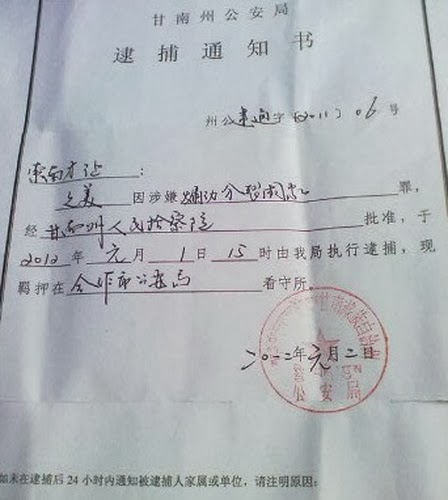 甘南州公安局
逮捕通知书
州公逮通字(2011)06号
索南才让:
之美因涉嫌煽动分裂国家罪,
经甘南州人民检察院批准,于
2012年元月1日15时由我局执行逮捕,现
羁押在合作市公安局看守所。
甘南藏族自治州
公安局
二〇一二年元月二日
如未在逮捕后24小时内通知被逮捕人家属或单位,请注明原因: